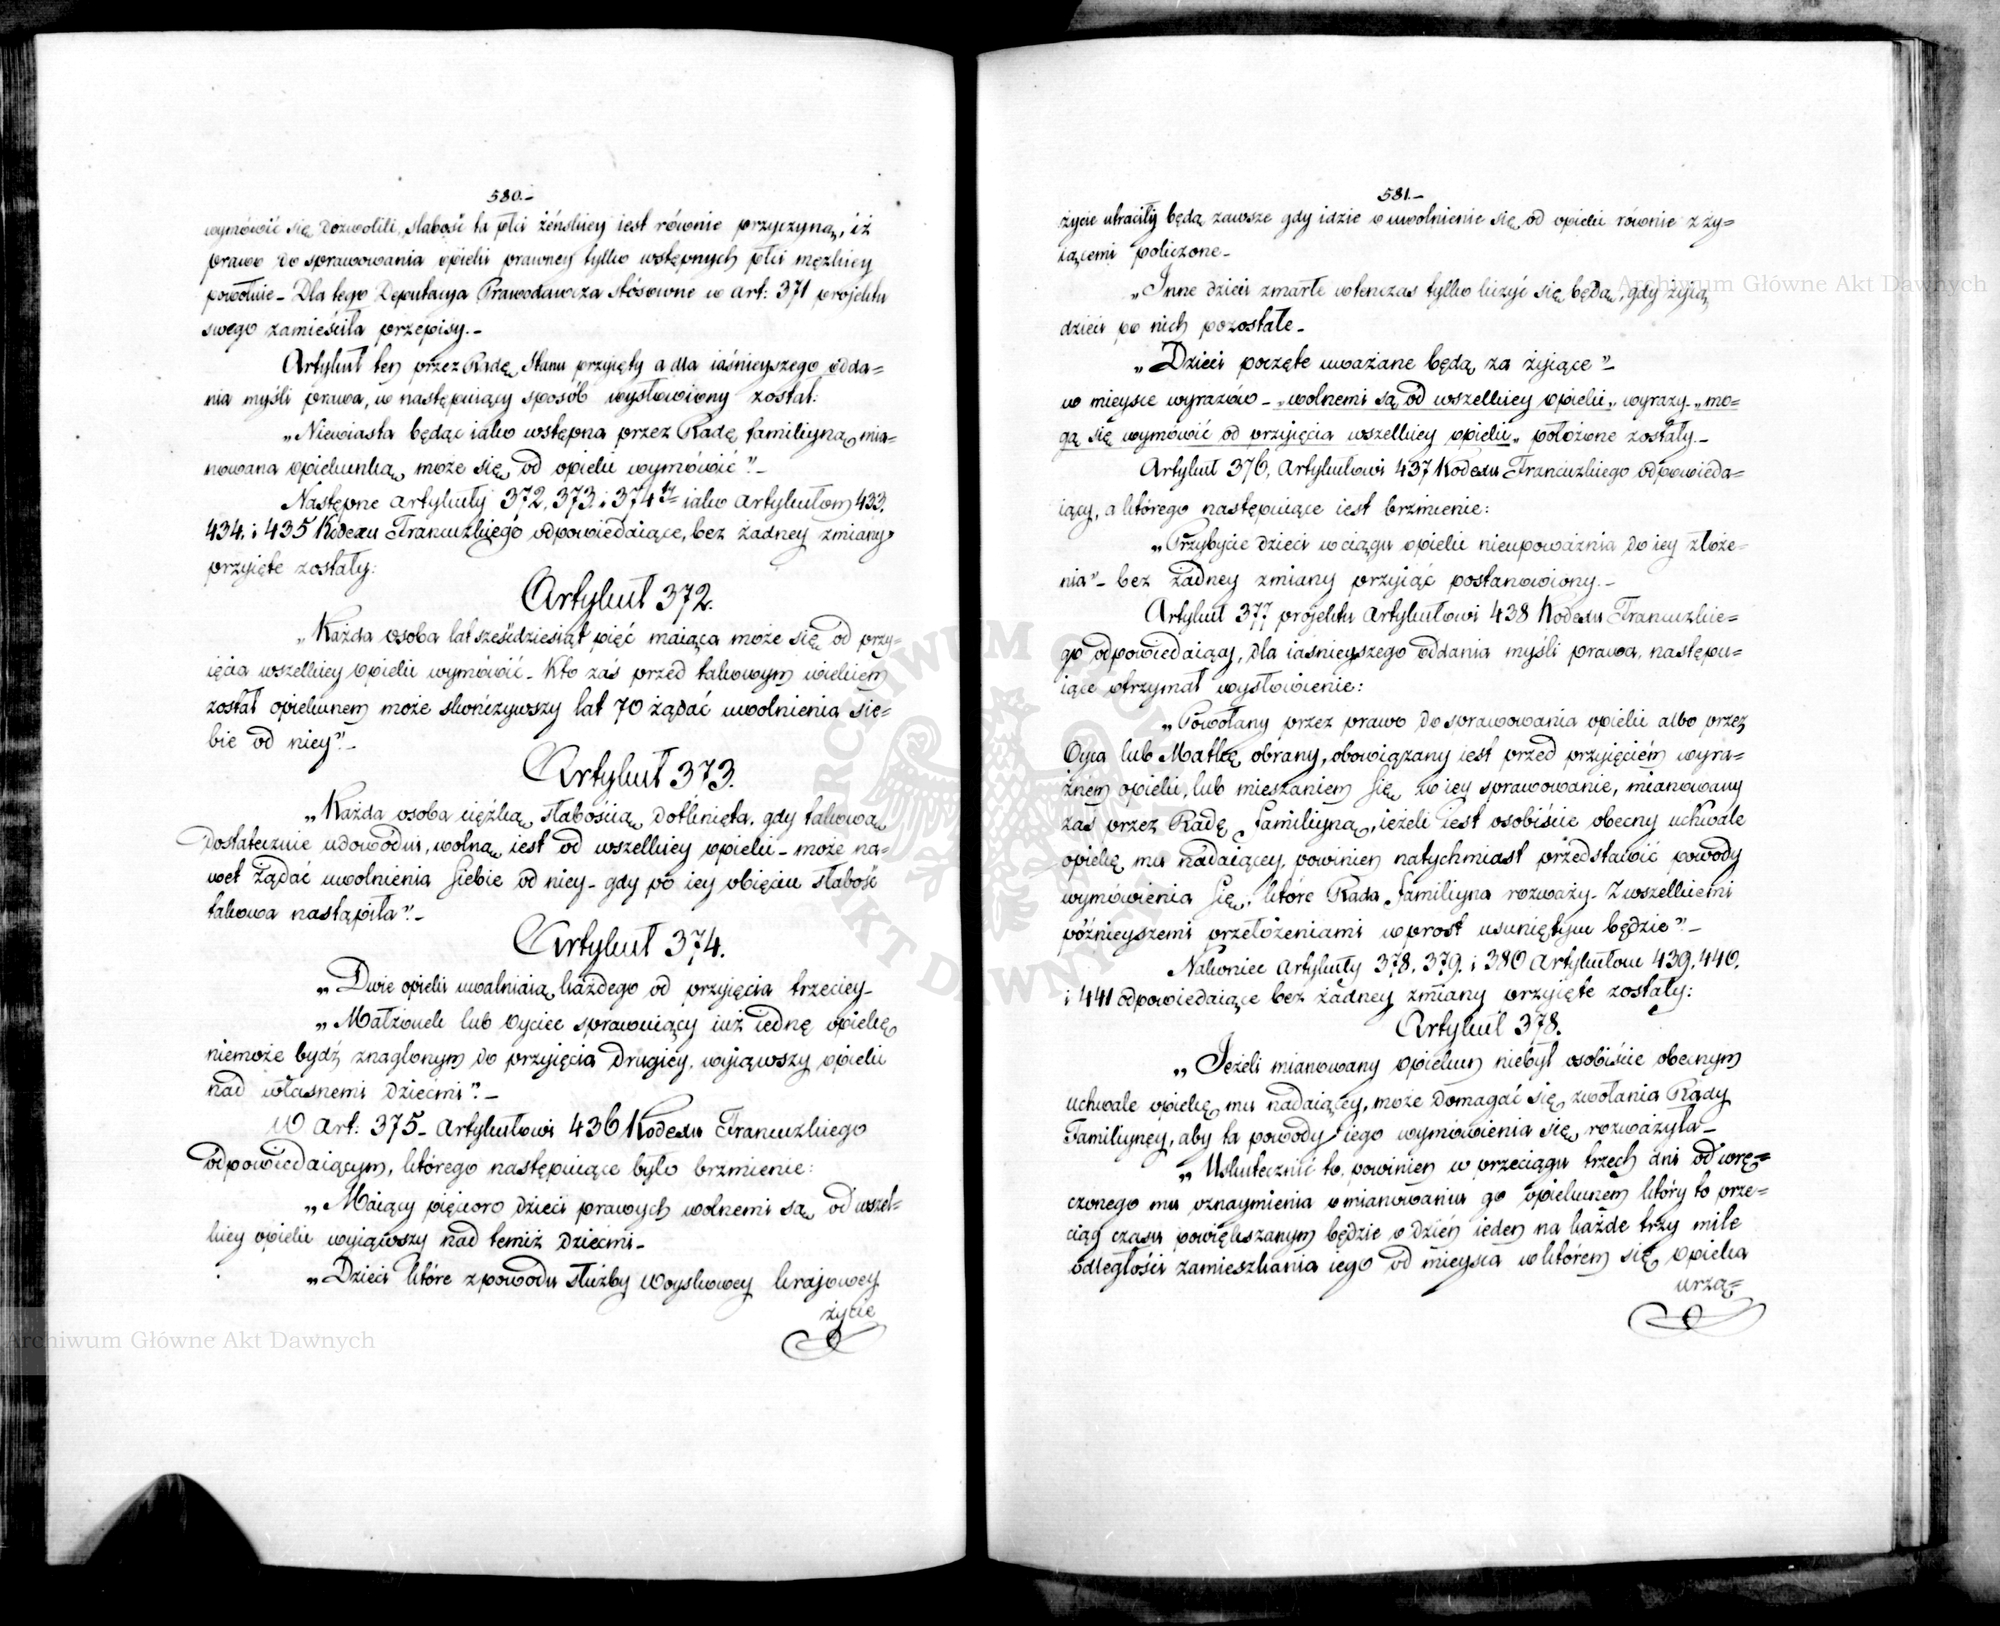 580.–
wymówić się dozwolili, słabość ta płci żeńskiey iest równie przyczyną, iż
prawo do sprawowania opieki prawney tylko wstępnych płci męzkiey
powołuie – Dla tego Deputacya Prawodawcza stósowne w art: 371 projektu
swego zamieściła przepisy.–
Artykuł ten przez Radę Stanu przyięty a dla iaśnieyszego odda=
nia myśli prawa, w następuiący sposób wysłowiony został:
„Niewiasta będąc iako wstępna przez Radę familiyną mia=
nowana opiekunką, może się od opieki wymówić”.–
Następne artykuły 372, 373 i 374ty iako artykułom 433.
434. i 435 Kodexu Francuzkiego odpowiedaiące, bez żadney zmiany
przyięte zostały:
Artykuł 372.
„Każda osoba lat sześćdziesiąt pięć maiąca może się od przy=
ięcia wszelkiey opieki wymówić. Kto zaś przed takowym wiekiem
został opiekunem może skończywszy lat 70 żądać uwolnienia sie=
bie od niey”.–
Artykuł 373.
„Każda osoba ciężką słabością dotknięta, gdy takową
dostatecznie udowodni, wolną iest od wszelkiey opieki – może na=
wet żądać uwolnienia siebie od niey – gdy po iey obięciu słabość
takowa nastąpiła”.–
Artykuł 374.
„Dwie opieki uwalniaią każdego od przyięcia trzeciey –
„Małżonek lub Oyciec sprawuiący iuż iednę opiekę
niemoże bydź znaglonym do przyięcia drugiey, wyiąwszy opieki
nad własnemi dziećmi”.–
W art: 375 – artykułowi 436 Kodexu Francuzkiego
odpowiedaiącym, którego następuiące było brzmienie:
„Maiący pięcioro dzieci prawych wolnemi są od wszel=
kiey opieki wyiąwszy nad temiż dziećmi –
„Dzieci które z powodu służby woyskowey krajowey
życie
581.–
życie utraciły będą zawsze gdy idzie o uwolnienie się od opieki równie z ży=
iącemi policzone –
„Inne dzieci zmarłe wtenczas tylko liczyć się będą, gdy żyią
dzieci po nich pozostałe –
„Dzieci poczęte uważane będą za żyiące”–
w mieysce wyrazów – „wolnemi są od wszelkiey opieki„ wyrazy „mo=
gą się wymówić od przyięcia wszelkiey opieki„ położone zostały.–
Artykuł 376, artykułowi 437 Kodexu Francuzkiego odpowieda=
iący, a którego następuiące iest brzmienie:
„Przybycie dzieci w ciągu opieki nieupoważnia do iey złoże=
nia”– bez żadney zmiany przyiąć postanowiony.–
Artykuł 377 projektu artykułowi 438 Kodexu Francuzkie=
go odpowiedaiący, dla iaśnieyszego oddania myśli prawa, następu=
iące otrzymał wysłowienie:
„Powołany przez prawo do sprawowania opieki albo przez
Oyca lub Matkę obrany, obowiązany iest przed przyięciem wyra=
źnem opieki, lub mieszaniem się w iey sprawowanie, mianowany
zaś przez Radę familiyną, ieżeli iest osobiście obecny uchwale
opiekę mu nadaiącey, powinien natychmiast przedstawić powody
wymówienia się, które Rada familiyna rozważy – Z wszelkiemi
późnieyszemi przełożeniami wprost usuniętym będzie”.–
Nakoniec artykuły 378, 379. i 380 artykułom 439, 440.
i 441 odpowiedaiące bez żadney zmiany przyięte zostały:
Artykuł 378.
„Jeżeli mianowany opiekun niebył osobiście obecnym
uchwale opiekę mu nadaiącey, może domagać się zwołania Rady
Familiyney, aby ta powody iego wymówienia się rozważyła –
„Uskutecznić to powinien w przeciągu trzech dni od wrę=
czonego mu oznaymienia o mianowaniu go opiekunem który to prze=
ciąg czasu powiększanym będzie o dzień ieden na każde trzy mile
odległości zamieszkania iego od mieysca w którem się opieka
urzą=
Archiwum Główne Akt Dawnych
Archiwum Główne Akt Dawnych
ARCHIWUM GŁÓWNE AKT DAWNYCH